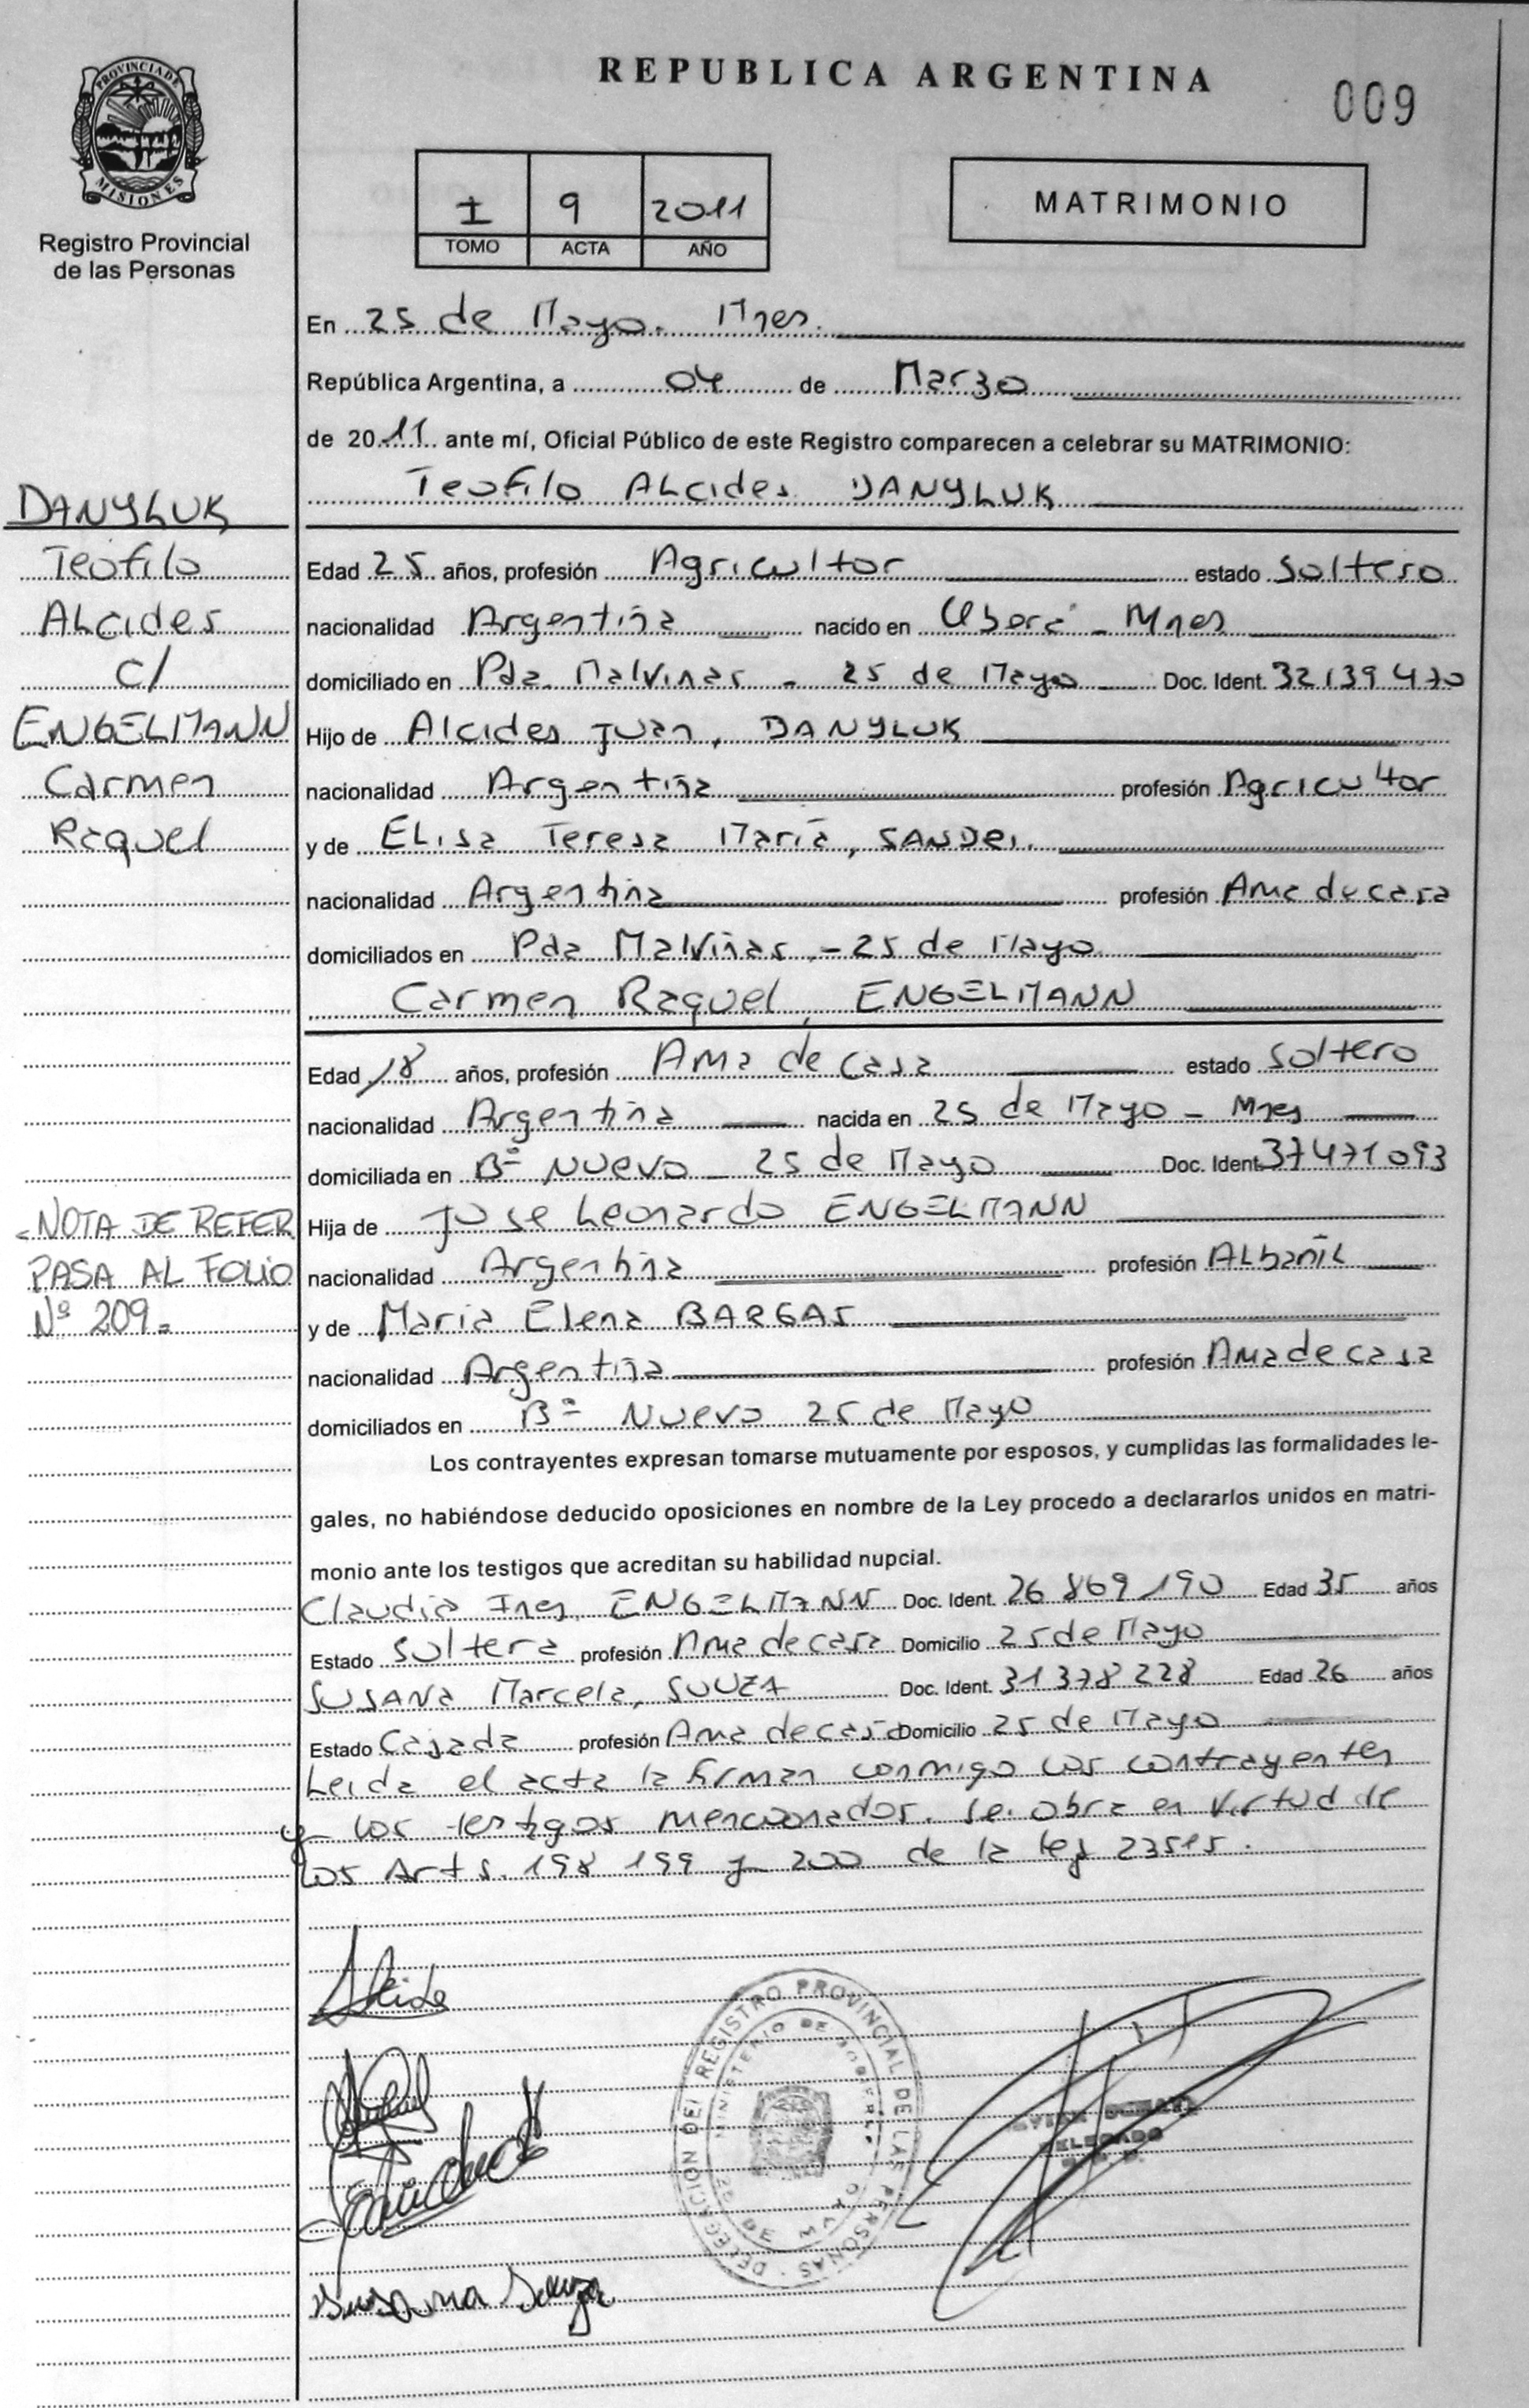 REPUBLICA ARGENTINA
009
PROVINCIA DE
MISIONES
Registro Provincial
de las Personas
I 9 2011
TOMO ACTA AÑO
MATRIMONIO
En 25 de Mayo. Mnes.
República Argentina, a 04 de Marzo
de 2011 ante mí, Oficial Público de este Registro comparecen a celebrar su MATRIMONIO:
Teofilo ALcides DANYLUK
DANYLUK
Teofilo
ALcides
c/
ENGELMANN
Carmen
Raquel
Edad 25 años, profesión Agricultor estado Soltero
nacionalidad Argentina nacido en Oberá - Mnes
domiciliado en Pda. Malvinas - 25 de Mayo Doc. Ident. 32139470
Hijo de Alcides Juan, DANYLUK
nacionalidad Argentina profesión Agricultor
y de ELisa Teresa María, SANDEI.
nacionalidad Argentina profesión Ama de casa
domiciliados en Pda Malvinas - 25 de Mayo
Carmen Raquel, ENGELMANN
Edad 18 años, profesión Ama de casa estado Soltero
nacionalidad Argentina nacida en 25 de Mayo - Mnes
domiciliada en Bº Nuevo - 25 de Mayo Doc. Ident. 37471093
Hija de Jose Leonardo ENGELMANN
nacionalidad Argentina profesión ALbañiL
y de Maria Elena BARGAS
nacionalidad Argentina profesión Ama de casa
domiciliados en Bº Nuevo 25 de Mayo
- NOTA DE REFER
PASA AL FOLIO
Nº 209=
Los contrayentes expresan tomarse mutuamente por esposos, y cumplidas las formalidades le-
gales, no habiéndose deducido oposiciones en nombre de la Ley procedo a declararlos unidos en matri-
monio ante los testigos que acreditan su habilidad nupcial.
Claudia Ines, ENGELMANN Doc. Ident. 26 869 190 Edad 35 años
Estado Soltera profesión Ama de casa Domicilio 25 de Mayo
SUSANA Marcela, SOUZA Doc. Ident. 31 378 228 Edad 26 años
Estado Casada profesión Ama de casa Domicilio 25 de Mayo
Leida el acta la firman conmigo los contrayentes
y los testigos mencionados. Se obra en virtud de
los Arts. 198 199 y 200 de la ley 23515.
DELEGACION DEL REGISTRO PROVINCIAL DE LAS PERSONAS
MINISTERIO DE GOBIERNO
25 DE MAYO
DELEGADO
Susana Souza